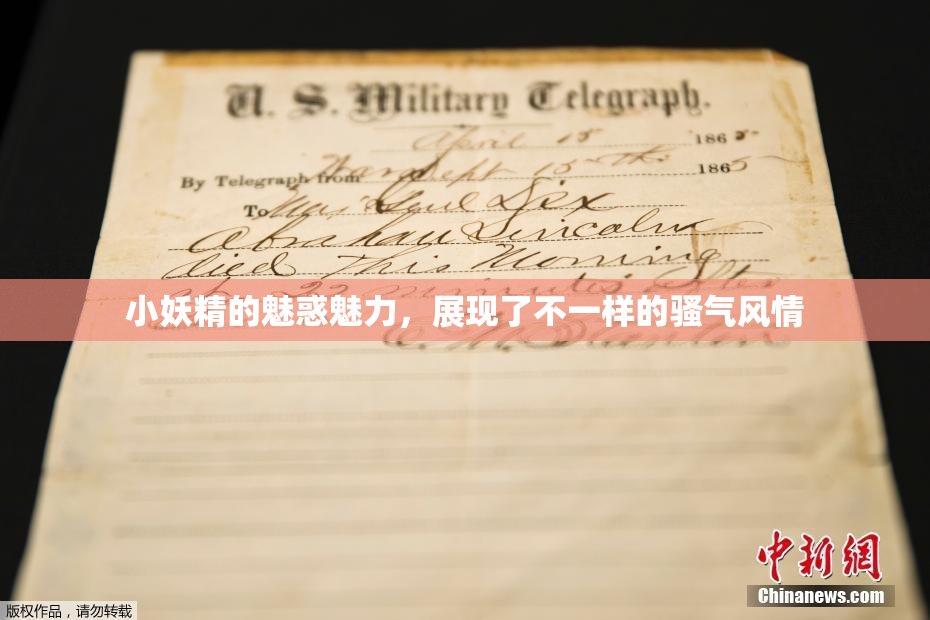 U. S. Military Telegraph.
April 15 1865
By Telegraph from War Dept 15th 1865
To Maj Genl Dix
Abraham Lincoln
died This Morning
22 minutes after
小妖精的魅惑魅力，展现了不一样的骚气风情
E. M. Stanton
中新网
Chinanews.com
版权作品，请勿转载